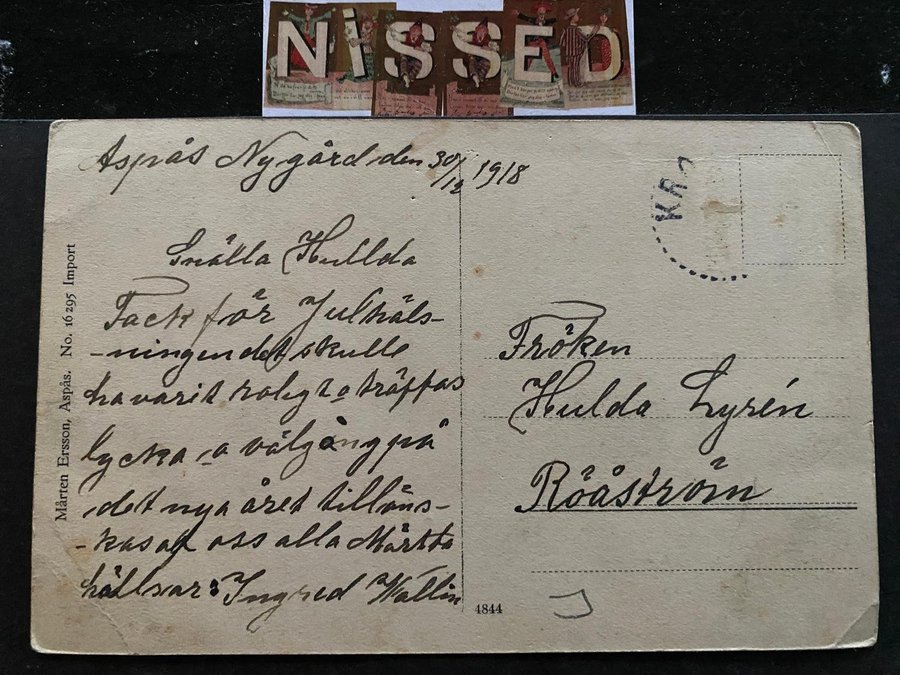 NISSED
Aspås Nygård den 30/12 1918
Snälla Hullda
Tack för Julhäls-
-ningen det skulle
ha varit roligt o träffas
lycka o välgång på
det nya året tillöns-
-kas af oss alla Märtha
hällsar: Ingred Wallin
Mårten Ersson, Aspås. No. 16 295 Import
4844
KRO
Fröken
Hulda Lyrén
Rööåström